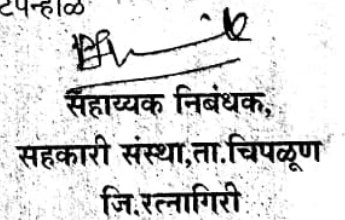 टपन्हाळ
सहाय्यक निबंधक,
सहकारी संस्था,ता.चिपळूण
जि.रत्नागिरी